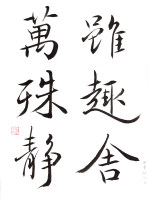 雖趣舍
萬殊靜